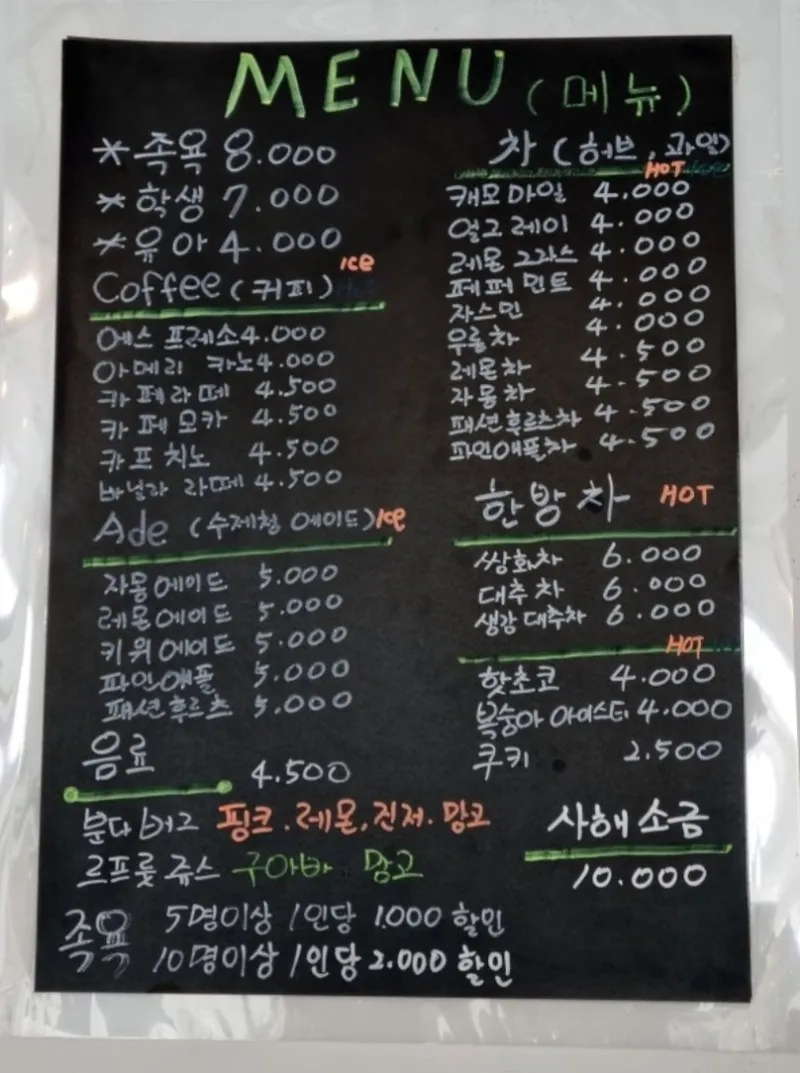 MENU (메뉴)
*족욕 8.000
*학생 7.000
*유아 4.000
Coffee (커피) ICE
에스프레소 4.000
아메리카노 4.000
카페라떼 4.500
카페모카 4.500
카프치노 4.500
바닐라 라떼 4.500
Ade (수제청 에이드) Ice
자몽에이드 5.000
레몬에이드 5.000
키위에이드 5.000
파인애플 5.000
패션후르츠 5.000
음료 4.500
분다버그 핑크.레몬,진저.망고
르프룻쥬스 구아바 망고
족욕 5명이상 1인당 1.000 할인
10명이상 1인당 2.000 할인
차 (허브, 과일)
HOT
캐모마일 4.000
얼그레이 4.000
레몬그라스 4.000
페퍼민트 4.000
자스민 4.000
우롱차 4.000
레몬차 4.500
자몽차 4.500
패션후르츠차 4.500
파인애플차 4.500
한방차 HOT
쌍화차 6.000
대추차 6.000
생강대추차 6.000
HOT
핫초코 4.000
복숭아 아이스티 4.000
쿠키 2.500
사해소금
10.000